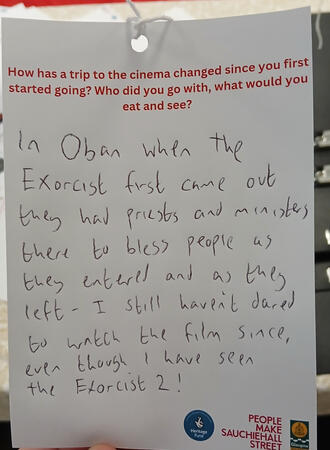 How has a trip to the cinema changed since you first
started going? Who did you go with, what would you
eat and see?
In Oban when the
Exorcist first came out
they had priests and ministers
there to bless people as
they entered and as they
left - I still haven't dared
to watch the film since,
even though I have seen
the Exorcist 2!
Heritage
Fund
PEOPLE
MAKE
SAUCHIEHALL
STREET